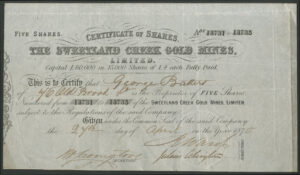 FIVE SHARES. Nos 13731 to 13735
CERTIFICATE OF SHARES.
THE SWEETLAND CREEK GOLD MINES,
LIMITED.
Capital in Shares of £4 each Fully Paid.
This is to Certify that George Baker
of Old Broad St is the Proprietor of FIVE Shares
Numbered from 13731 to 13735 of the SWEETLAND CREEK GOLD MINES, LIMITED,
subject to the Regulations of the said Company.
Given under the Common Seal of the said Company
the 27th day of April in the Year